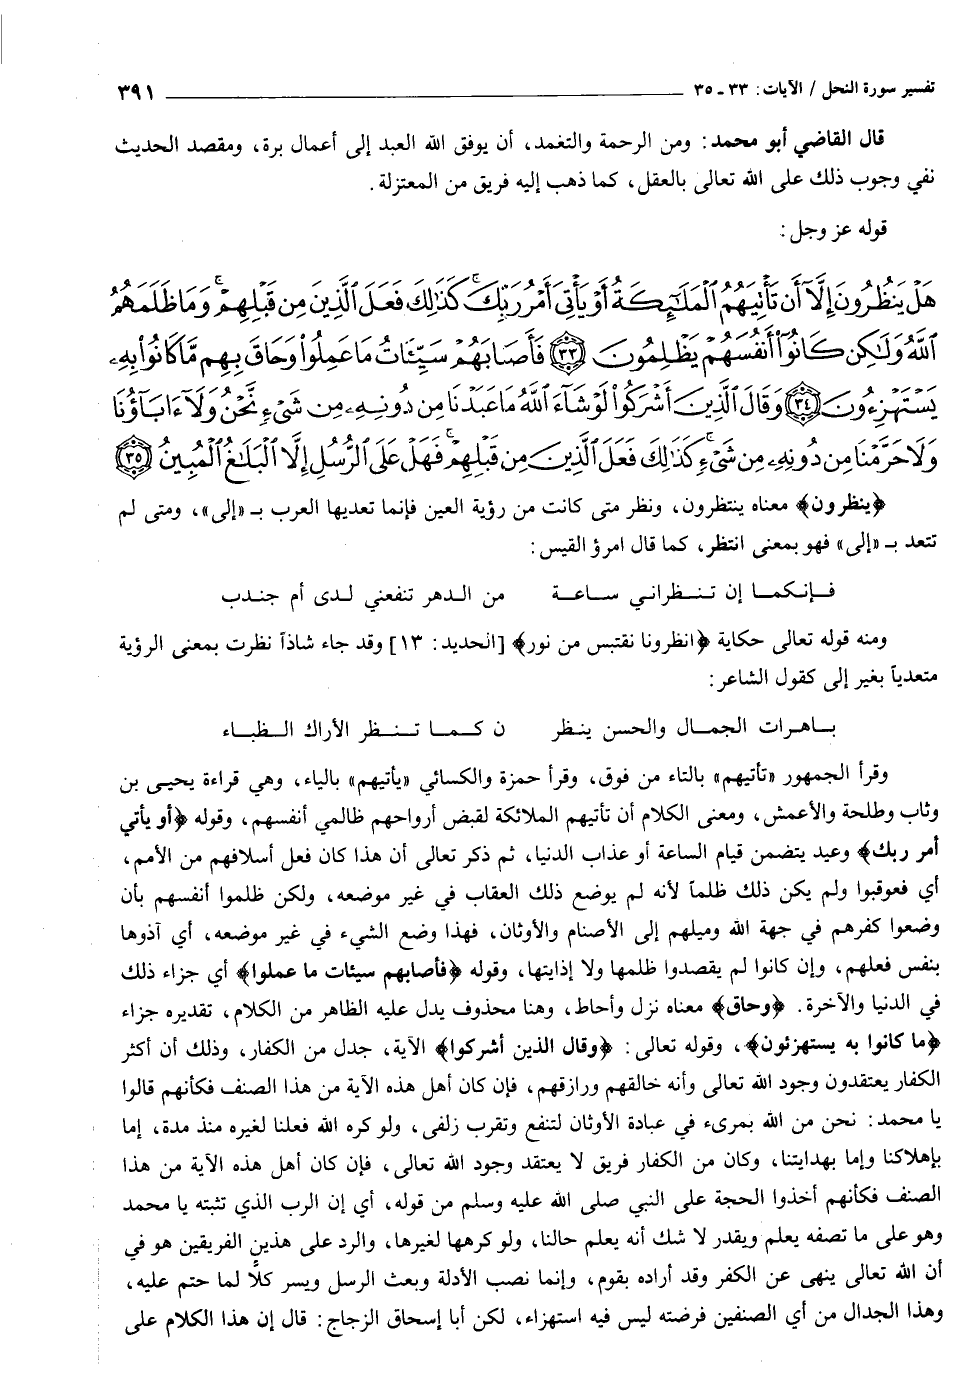 تفسير سورة النحل / الآيات: ٣٣ - ٣٥ ٣٩١
قال القاضي أبو محمد: ومن الرحمة والتغمد، أن يوفق الله العبد إلى أعمال برة، ومقصد الحديث
نفي وجوب ذلك على الله تعالى بالعقل، كما ذهب إليه فريق من المعتزلة.
قوله عز وجل:
هَلْ يَنظُرُونَ إِلَّآ أَن تَأْتِيَهُمُ ٱلْمَلَٰٓئِكَةُ أَوْ يَأْتِىَ أَمْرُ رَبِّكَ ۚ كَذَٰلِكَ فَعَلَ ٱلَّذِينَ مِن قَبْلِهِمْ ۚ وَمَا ظَلَمَهُمُ
ٱللَّهُ وَلَٰكِن كَانُوٓا۟ أَنفُسَهُمْ يَظْلِمُونَ ٣٣ فَأَصَابَهُمْ سَيِّـَٔاتُ مَا عَمِلُوا۟ وَحَاقَ بِهِم مَّا كَانُوا۟ بِهِۦ
يَسْتَهْزِءُونَ ٣٤ وَقَالَ ٱلَّذِينَ أَشْرَكُوا۟ لَوْ شَآءَ ٱللَّهُ مَا عَبَدْنَا مِن دُونِهِۦ مِن شَىْءٍ نَّحْنُ وَلَآ ءَابَآؤُنَا
وَلَا حَرَّمْنَا مِن دُونِهِۦ مِن شَىْءٍ ۚ كَذَٰلِكَ فَعَلَ ٱلَّذِينَ مِن قَبْلِهِمْ ۚ فَهَلْ عَلَى ٱلرُّسُلِ إِلَّا ٱلْبَلَٰغُ ٱلْمُبِينُ ٣٥
﴿ينظرون﴾ معناه ينتظرون، ونظر متى كانت من رؤية العين فإنما تعديها العرب بـ «إلى»، ومتى لم
تتعد بـ «إلى» فهو بمعنى انتظر، كما قال امرؤ القيس:
فـإنـكـمـا إن تـنـظرانـي سـاعـة من الـدهر تنفعني لـدى أم جنـدب
ومنه قوله تعالى حكاية ﴿انظرونا نقتبس من نور﴾ [الحديد: ١٣] وقد جاء شاذاً نظرت بمعنى الرؤية
متعدياً بغير إلى كقول الشاعر:
بـاهـرات الجمـال والحسن ينـظر ن كـمـا تـنـظر الأراك الـظباء
وقرأ الجمهور «تأتيهم» بالتاء من فوق، وقرأ حمزة والكسائي «يأتيهم» بالياء، وهي قراءة يحيـى بن
وثاب وطلحة والأعمش، ومعنى الكلام أن تأتيهم الملائكة لقبض أرواحهم ظالمي أنفسهم، وقوله ﴿أو يأتي
أمر ربك﴾ وعيد يتضمن قيام الساعة أو عذاب الدنيا، ثم ذكر تعالى أن هذا كان فعل أسلافهم من الأمم،
أي فعوقبوا ولم يكن ذلك ظلماً لأنه لم يوضع ذلك العقاب في غير موضعه، ولكن ظلموا أنفسهم بأن
وضعوا كفرهم في جهة الله وميلهم إلى الأصنام والأوثان، فهذا وضع الشيء في غير موضعه، أي آذوها
بنفس فعلهم، وإن كانوا لم يقصدوا ظلمها ولا إذايتها، وقوله ﴿فأصابهم سيئات ما عملوا﴾ أي جزاء ذلك
في الدنيا والآخرة. ﴿وحاق﴾ معناه نزل وأحاط، وهنا محذوف يدل عليه الظاهر من الكلام، تقديره جزاء
﴿ما كانوا به يستهزئون﴾، وقوله تعالى: ﴿وقال الذين أشركوا﴾ الآية، جدل من الكفار، وذلك أن أكثر
الكفار يعتقدون وجود الله تعالى وأنه خالقهم ورازقهم، فإن كان أهل هذه الآية من هذا الصنف فكأنهم قالوا
يا محمد: نحن من الله بمرىء في عبادة الأوثان لتنفع وتقرب زلفى، ولو كره الله فعلنا لغيره منذ مدة، إما
بإهلاكنا وإما بهدايتنا، وكان من الكفار فريق لا يعتقد وجود الله تعالى، فإن كان أهل هذه الآية من هذا
الصنف فكأنهم أخذوا الحجة على النبي صلى الله عليه وسلم من قوله، أي إن الرب الذي تثبته يا محمد
وهو على ما تصفه يعلم ويقدر لا شك أنه يعلم حالنا، ولو كرهها لغيرها، والرد على هذين الفريقين هو في
أن الله تعالى ينهى عن الكفر وقد أراده بقوم، وإنما نصب الأدلة وبعث الرسل ويسر كلاًّ لما حتم عليه،
وهذا الجدال من أي الصنفين فرضته ليس فيه استهزاء، لكن أبا إسحاق الزجاج: قال إن هذا الكلام على